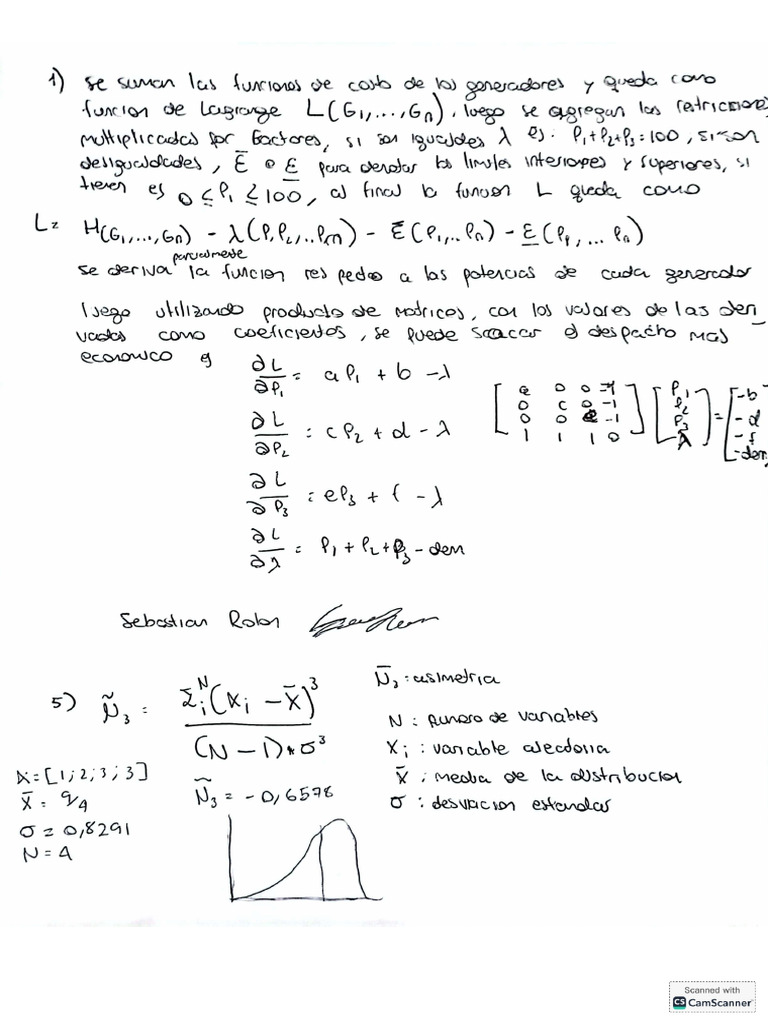 1) se suman las funciones de costo de los generadores y queda como
funcion de Lagrange L(G₁,...,Gn), luego se agregan las restricciones
multiplicadas por factores, si son igualdes λ ej: P₁+P₂+P₃=100, si son
desigualdades, Ē o E̲ para denotar los limites interiores y superiores, si
tienen ej 0 ≤ P₁ ≤ 100, al final la funcion L queda como
L= H(G₁,...,Gn) - λ(P₁P₂...Pn) - Ē(P₁,..Pn) - E̲(P₁,...Pn)
parcialmente
se deriva la funcion respecto a las potencias de cada generador
luego utilizando producto de matrices, con los valores de las deri
vadas como coeficientes, se puede sacar el despacho mas
economico ej
∂L/∂P₁ = aP₁ + b - λ
[a 0 0 -1; 0 c 0 -1; 0 0 e -1; 1 1 1 0] [P₁; P₂; P₃; λ] = [-b; -d; -f; -dem]
∂L/∂P₂ = cP₂ + d - λ
∂L/∂P₃ = eP₃ + f - λ
∂L/∂λ = P₁ + P₂ + P₃ - dem
Sebastian Rolon
5) Ñ₃ = Σᵢᴺ(Xᵢ - X̄)³ / (N-1)*σ³
N̄₃: asimetria
N: numero de variables
Xᵢ: variable aleatoria
X̄: media de la distribucion
σ: desviacion estandar
Xi = [1; 2; 3; 3]
X̄ = 9/4
σ = 0,8291
N = 4
Ñ₃ = -0,6578
Scanned with
CS CamScanner